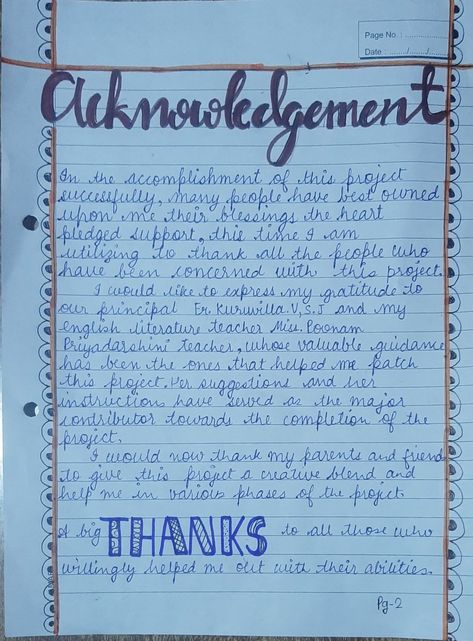 Page No.: ..............
Date: ......../......../........
Acknowledgement
In the accomplishment of this project
successfully, many people have best owned
upon me their blessings the heart
pledged support, this time I am
utilizing to thank all the people who
have been concerned with this project.
I would like to express my gratitude to
our principal Fr. Kuruvilla V, S.J and my
english literature teacher Miss. Poonam
Priyadarshini teacher, whose valuable guidance
has been the ones that helped me patch
this project. Her suggestions and her
instructions have served as the major
contributor towards the completion of the
project.
I would now thank my parents and friend
to give this project a creative blend and
help me in various phases of the project.
A big THANKS to all those who
willingly helped me out with their abilities.
Pg-2